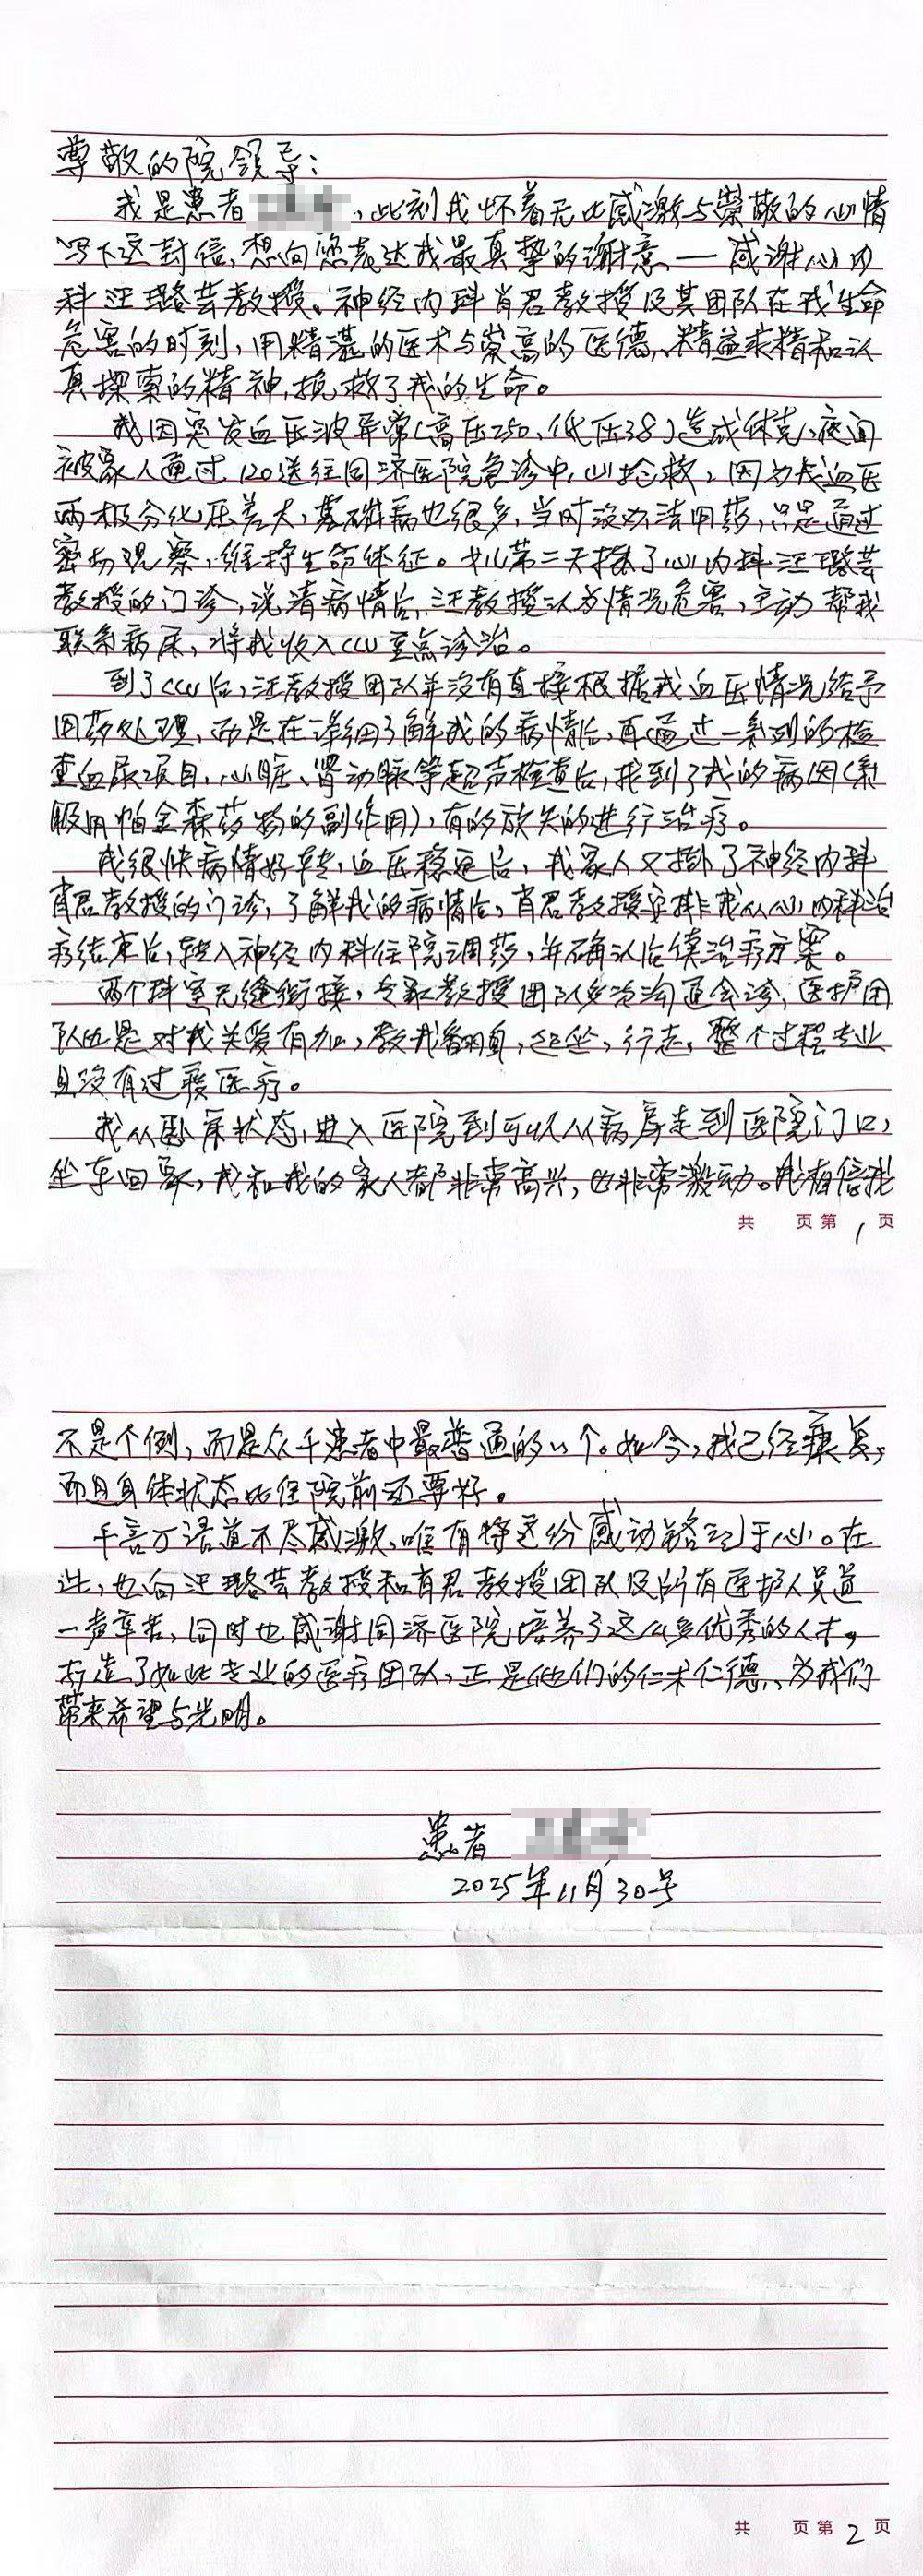 尊敬的院领导：
我是患者 ，此刻我怀着无比感激与崇敬的心情
写下这封信，想向您表达我最真挚的谢意。—感谢心内
科汪璐芸教授、神经内科肖君教授及其团队在我生命
危害的时刻，用精湛的医术与崇高的医德、精益求精和认
真探索的精神，挽救了我的生命。
我因突发血压波异常（高压250、低压38）造成休克，夜间
被家人通过120送往同济医院急诊中心抢救，因为我血压
两极分化压差大，基础病也很多，当时没办法用药，只是通过
密切观察，维持生命体征。女儿第二天挂了心内科汪璐芸
教授的门诊，说清病情后，汪教授认为情况危害，主动帮我
联系病床，将我收入CCU重点诊治。
到了CCU后，汪教授团队并没有直接根据我血压情况给予
用药处理，而是在详细了解我的病情后，再通过一系列的检
查血尿项目、心脏、肾动脉等超声检查后，找到了我的病因（系
服用帕金森药物的副作用），有的放矢的进行治疗。
我很快病情好转，血压稳定后，我家人又挂了神经内科
肖君教授的门诊，了解我的病情后，肖君教授安排我从心内科治
疗结束后，转入神经内科住院调药，并确认后续治疗方案。
两个科室无缝衔接，专家教授团队多次沟通会诊，医护团
队也是对我关爱有加，教我翻身，起坐，行走，整个过程专业
且没有过度医疗。
我从卧床状态，进入医院到可以从病房走到医院门口，
坐车回家，我和我的家人都非常高兴，也非常激动。我相信我
共 页第 1 页
不是个例，而是众千患者中最普通的一个。如今，我已经康复，
而且身体状态比住院前还要好。
千言万语道不尽感激，唯有将这份感动铭记于心。在
此，也向汪璐芸教授和肖君教授团队及所有医护人员道
一声辛苦，同时也感谢同济医院培养了这么多优秀的人才，
打造了如此专业的医疗团队，正是他们的仁术仁德、为我们
带来希望与光明。
患者
2025年11月30号
共 页第 2 页